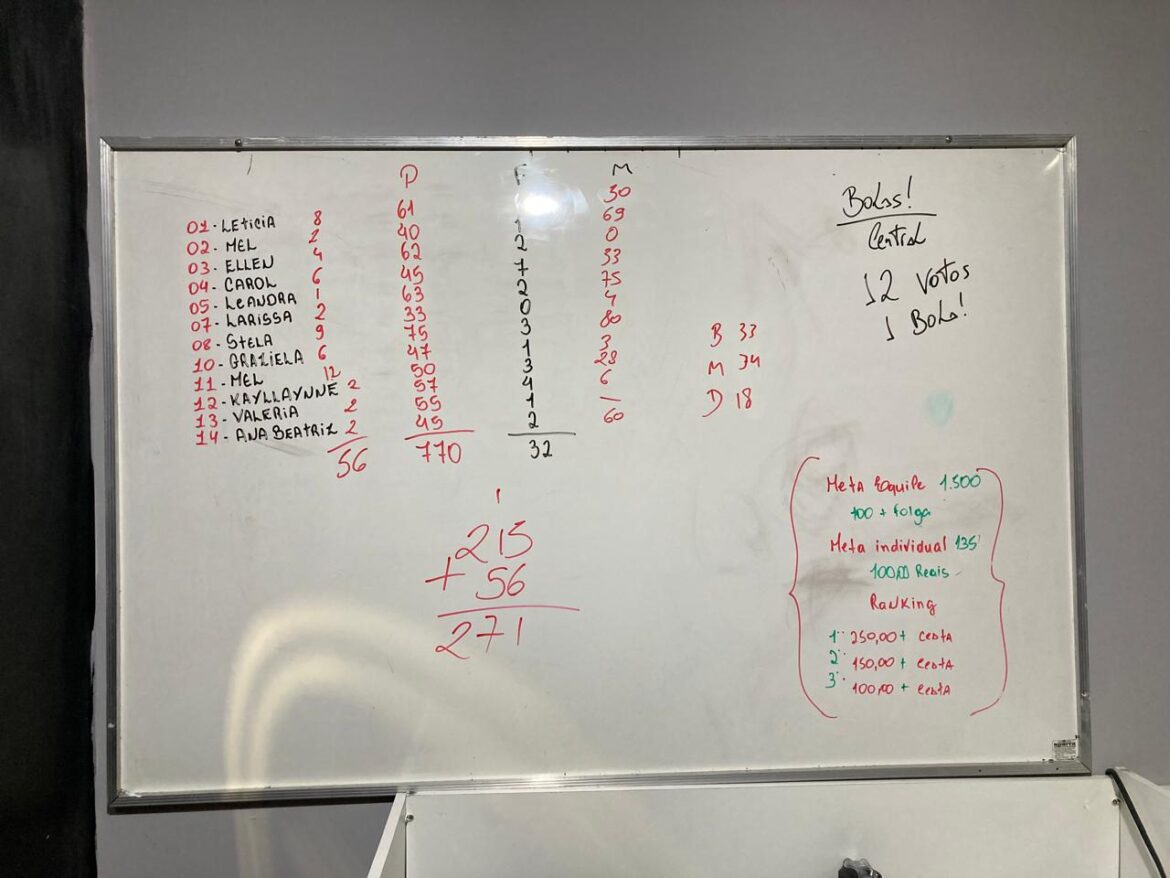 P F M
01- LETICIA 8 61 30
02- MEL 2 40 1 69
03- ELLEN 4 62 2 0
04- CAROL 6 45 7 33
05- LEANDRA 1 63 2 75
07- LARISSA 2 33 0 4
08- STELA 9 75 3 80
10- GRAZIELA 6 47 1 3
11- MEL 12 50 3 28
12- KAYLLAYNNE 2 57 4 6
13- VALERIA 2 55 1 —
14- ANA BEATRIZ 2 45 2 60
56 770 32
1
215
+ 56
271
B 33
M 34
D 18
Bolos!
Central
12 votos
1 Bolo!
Meta Equipe 1.500
100 + folga
Meta individual 135
100,00 Reais
Ranking
1º 250,00 + cesta
2º 150,00 + cesta
3º 100,00 + cesta